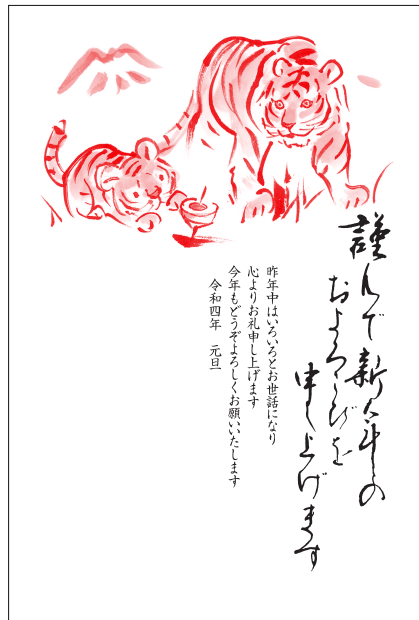 謹んで新年の
およろこびを
申し上げます
昨年中はいろいろとお世話になり
心よりお礼申し上げます
今年もどうぞよろしくお願いいたします
令和四年　元旦